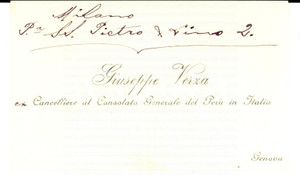 Milano
P.za SS. Pietro & Lino 2.
Giuseppe Verza
ex Cancelliere al Consolato Generale del Perù in Italia
Genova